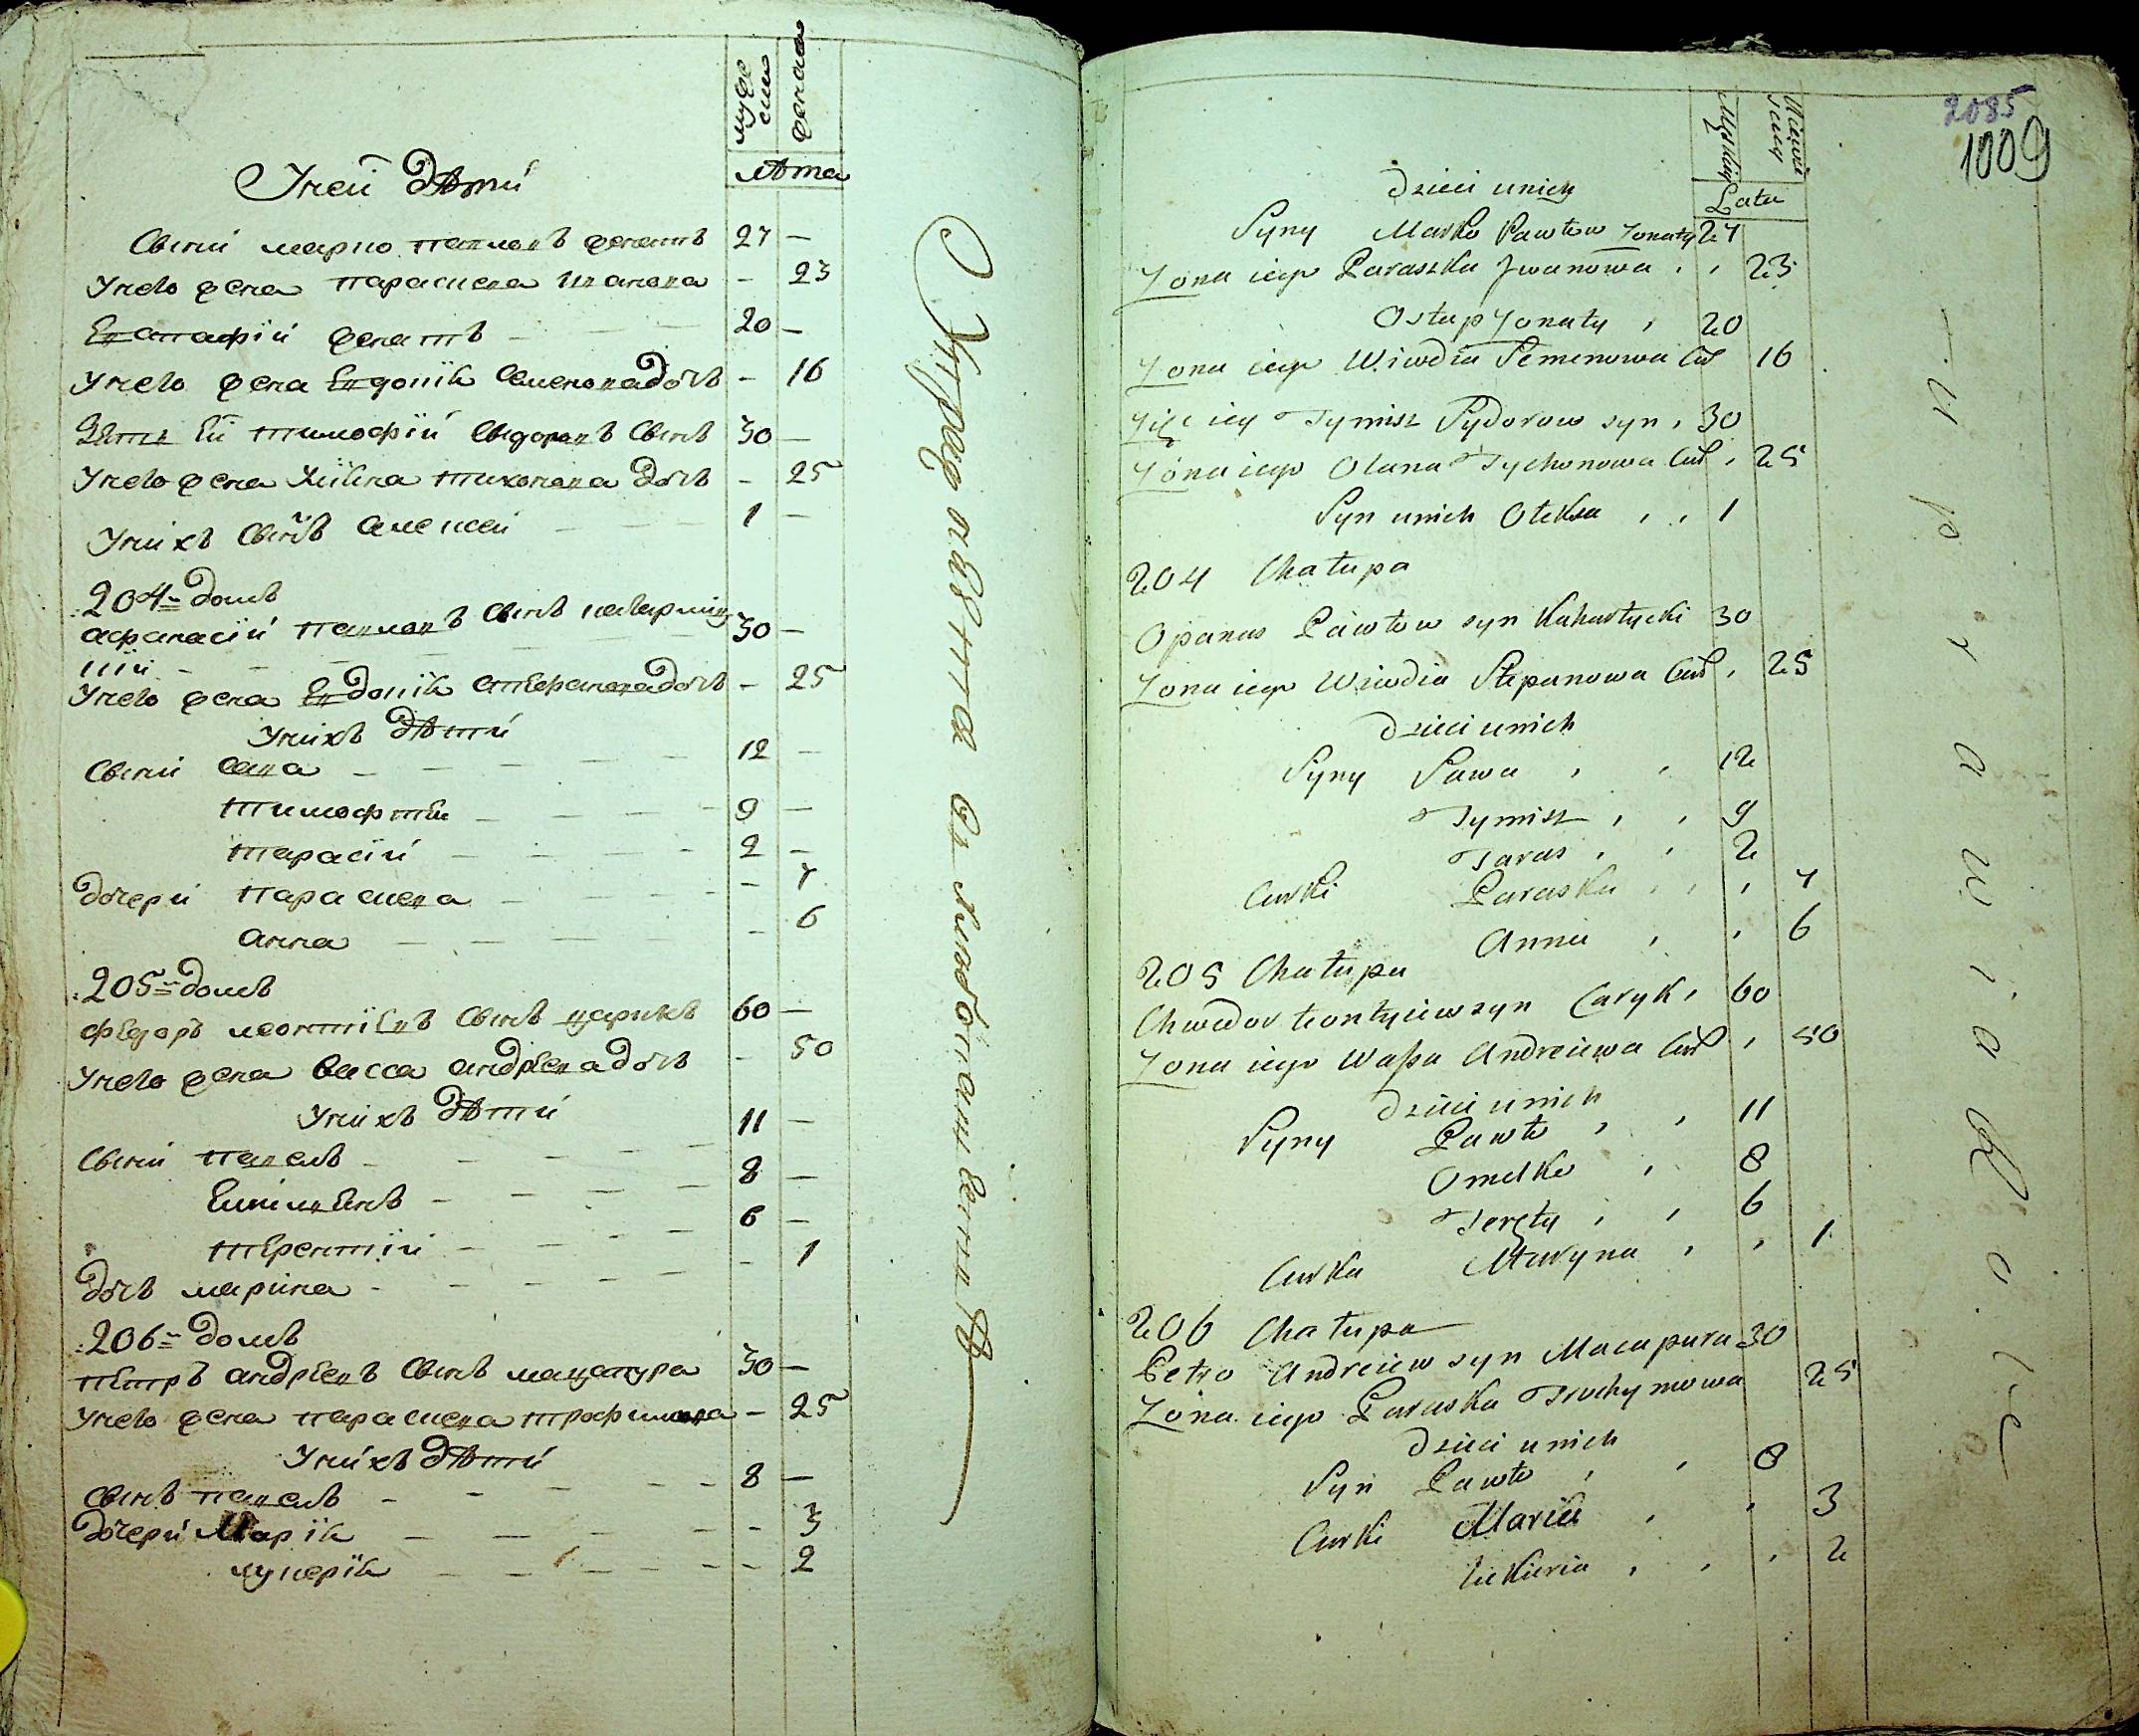 мужс
ски
женска
лѣта
У ней дѣти
Сыни марко павловъ женатъ 27 —
У него жена параскева иванова — 23
Евстафій женатъ 20 —
У него жена Евдокія семенова дочь — 16
Зять Ей тимофій Сыдоровъ Сынъ 30 —
У него жена Уліяна тихонова дочь — 25
У нихъ Сынъ алексей 1 —
204й домъ
афанасій павловъ Сынъ кагарлиц 30 —
кій
У него жена Евдокія степанова дочь — 25
У нихъ дѣти
Сыни сава 12 —
тимофтей 9 —
тарасій 2 —
дочери параскева — 7
анна — 6
205й домъ
федоръ леонтіевъ Сынъ царикъ 60 —
У него жена васса андреева дочь — 50
У нихъ дѣти
Сыни павелъ 11 —
Емілиенъ 8 —
терентій 6 —
дочь марина — 1
206й домъ
петръ андреевъ Сынъ мацапура 30 —
У него жена параскева трофимова — 25
У нихъ дѣти
Сынъ павелъ 8 —
дочери Марія — 3
лукерія — 2
2085
1009
Męskiey
Lata
Dzieci u niey
Syny Marko Pawłow żonaty 27
Żona iego Paraszka Jwanowa 23
Ostap żonaty 20
Żona iego Wiwdia Semenowa Cór 16
Zięć iey Tymisz Sydorow syn 30
Żona iego Olana Tychonowa Cór 25
Syn u nich Oleksa 1
204 Chałupa
Opanas Pawłow syn Kaharłycki 30
Żona iego Wiwdia Stepanowa Cór 25
Dzieci u nich
Syny Sawa 12
Tymisz 9
Taras 2
Curki Paraska 7
Anna 6
205 Chałupa
Chwedor Leontyiew syn Caryk 60
Żona iego Wassa Andreiewa Cór 50
Dzieci u nich
Syny Pawło 11
Omelko 8
Teręty 6
Curka Maryna 1
206 Chałupa
Petro Andreiew syn Macapura 30
Żona iego Paraska Trochymowa 25
Dzieci u nich
Syn Pawło 8
Curki Maria 3
Łukieria 2